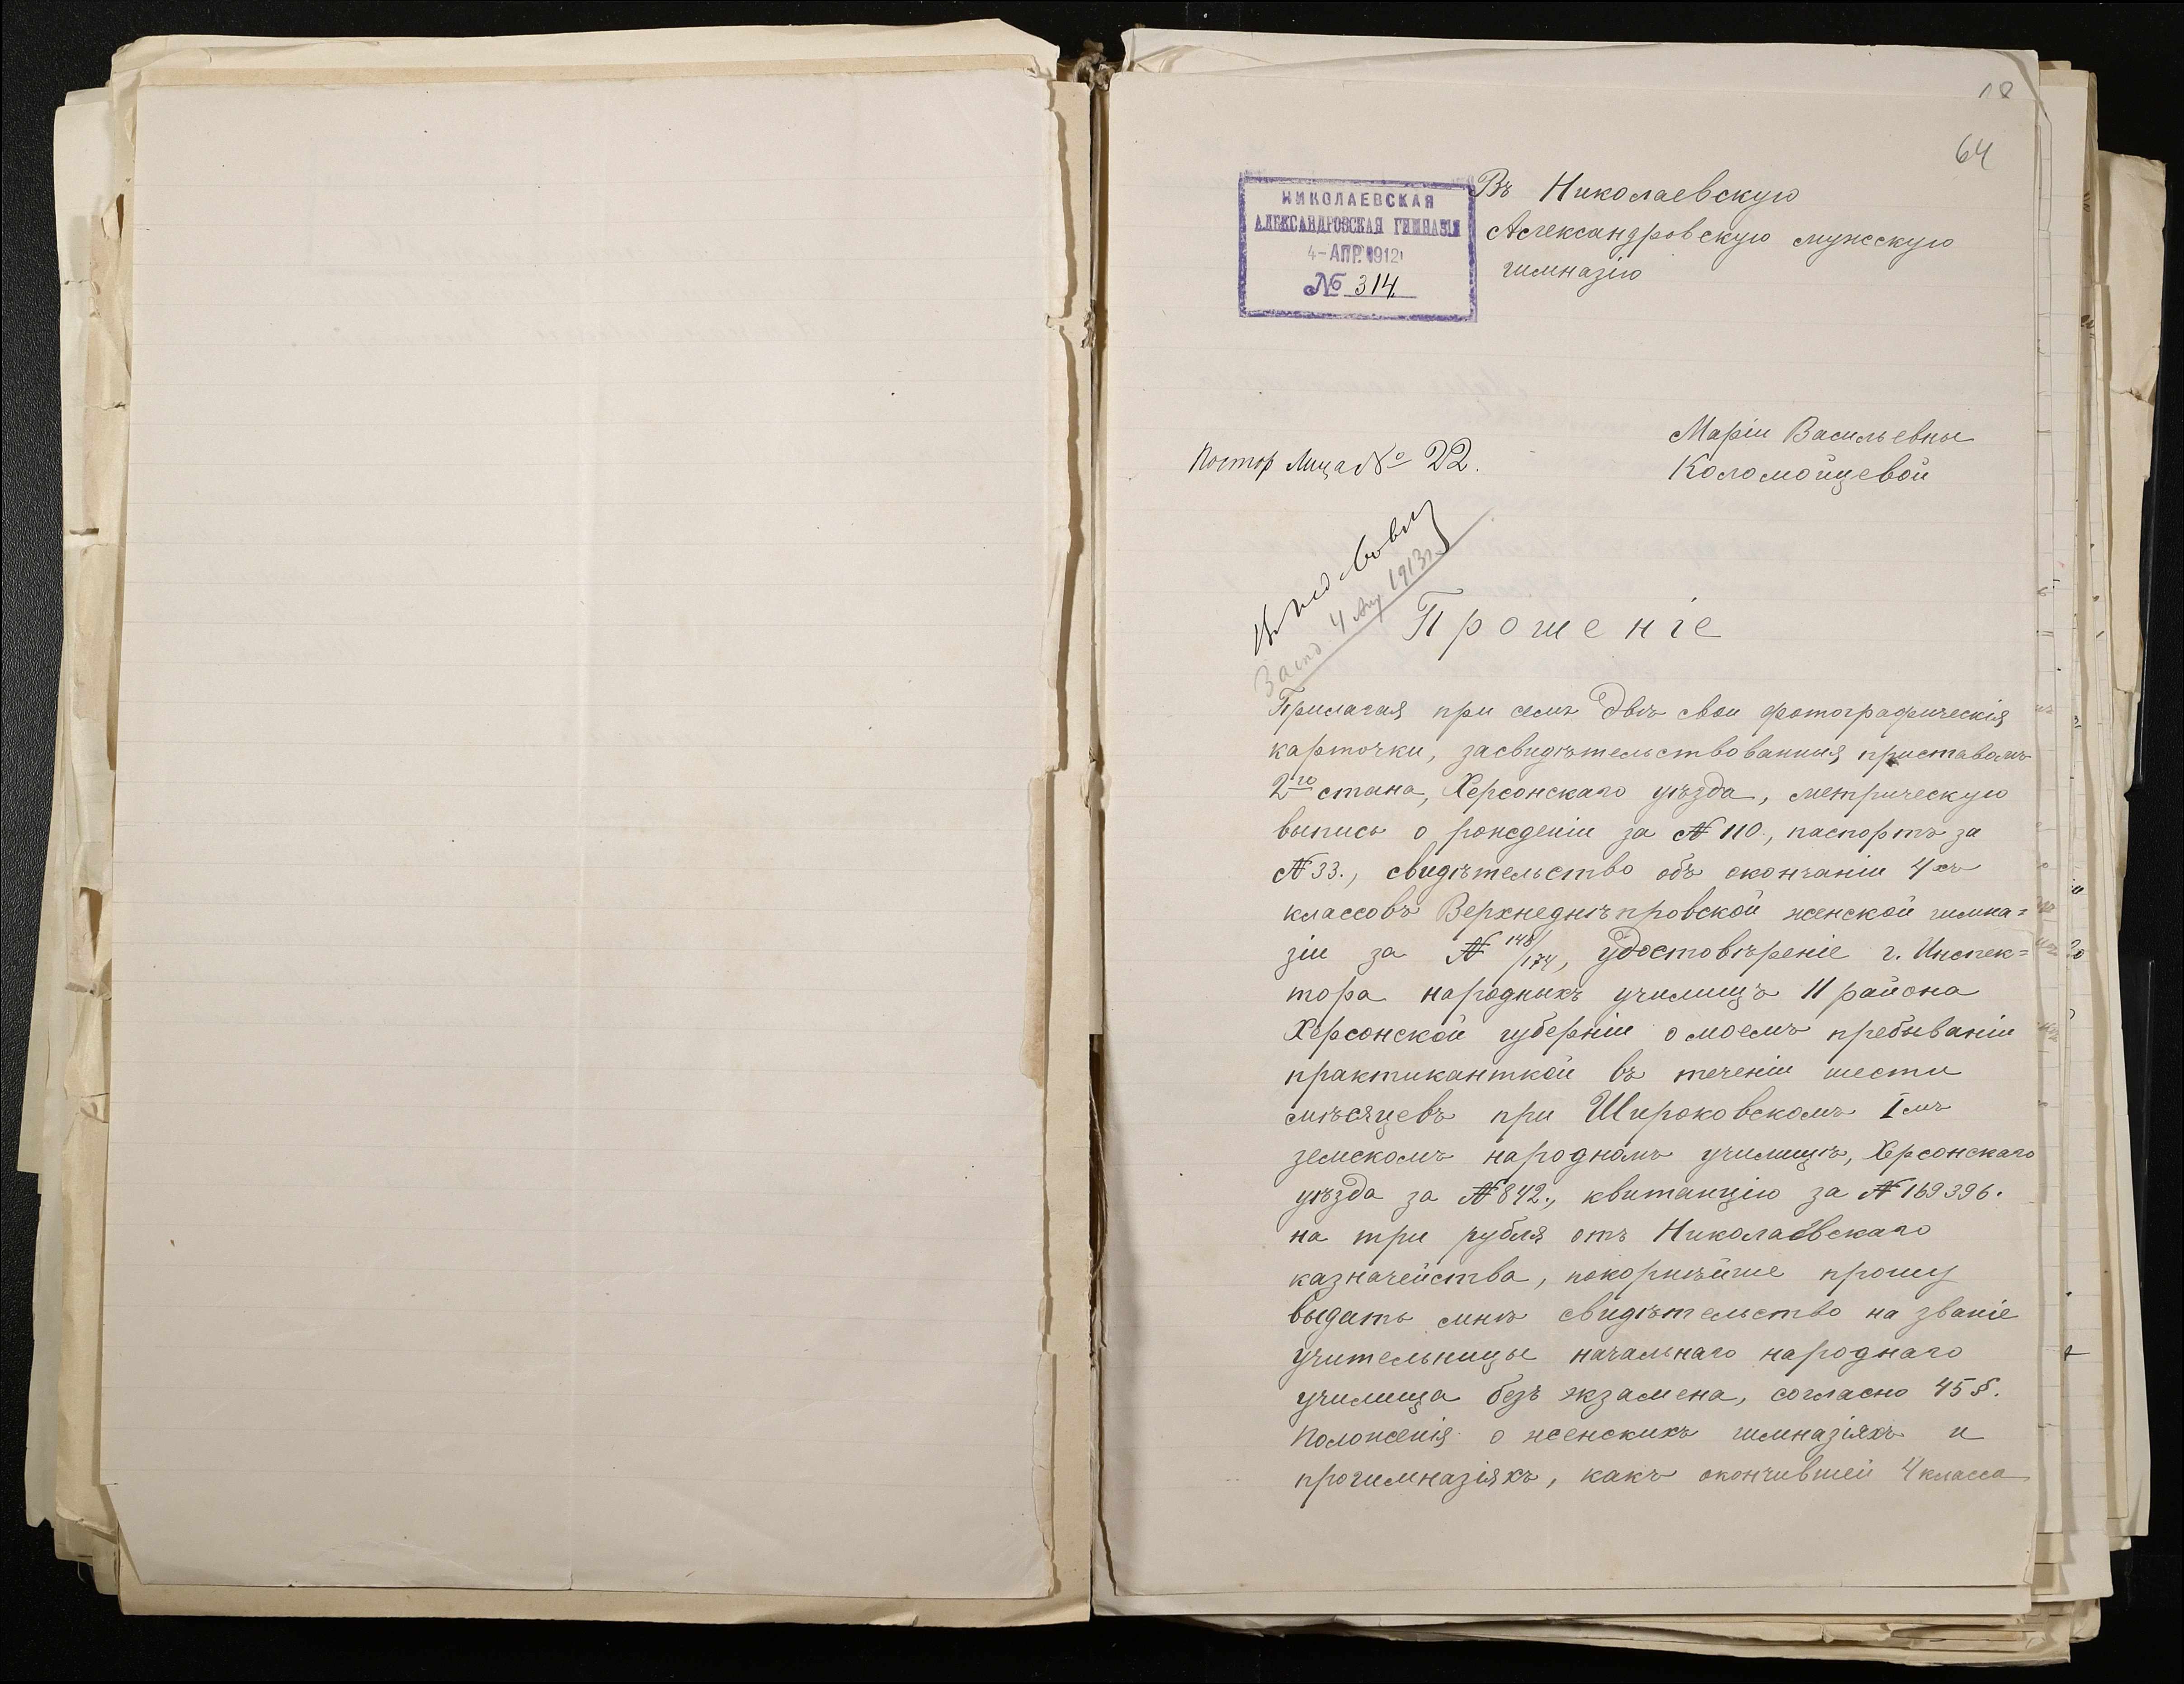 18
64
НИКОЛАЕВСКАЯ
АЛЕКСАНДРОВСКАЯ ГИМНАЗІЯ
4-АПР.1912
№ 314
Въ Николаевскую
Александровскую мужскую
гимназію
Маріи Васильевны
Коломойцевой
Постор Лица № 22.
4 Апр 1913г.
Прошеніе
Прилагая при семъ двѣ свои фотографическія
карточки, засвидѣтельствованныя приставомъ
2го стана, Херсонскаго уѣзда, метрическую
выпись о рожденіи за № 110., паспортъ за
№ 33., свидѣтельство объ окончаніи 4хъ
классовъ Верхнеднѣпровской женской гимна=
зіи за № 148/174, удостовѣреніе г. Инспек=
тора народныхъ училищъ II района
Херсонской губерніи о моемъ пребываніи
практиканткой въ теченіи шести
мѣсяцевъ при Широковскомъ Iмъ
земскомъ народномъ училищѣ, Херсонскаго
уѣзда за № 842., квитанцію за № 169396.
на три рубля отъ Николаевскаго
казначейства, покорнѣйше прошу
выдать мнѣ свидѣтельство на званіе
учительницы начальнаго народнаго
училища безъ экзамена, согласно 45 §.
Положенія о женскихъ гимназіяхъ и
прогимназіяхъ, какъ окончившей 4 класса